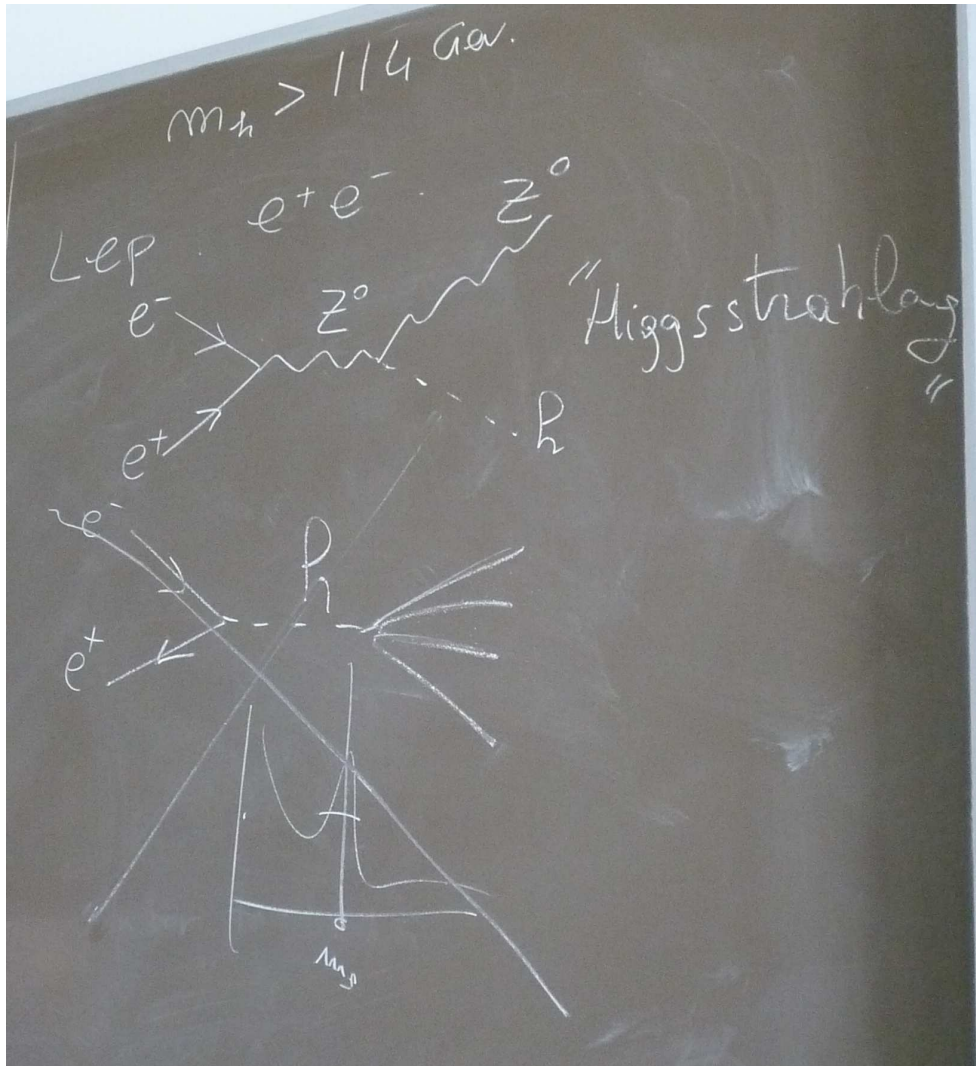 m_h > 114 Gev.
Lep. e⁺e⁻.
Z⁰
e⁻ Z⁰
"Higgsstrahlung"
e⁺ h
e⁻
h
e⁺
m_h